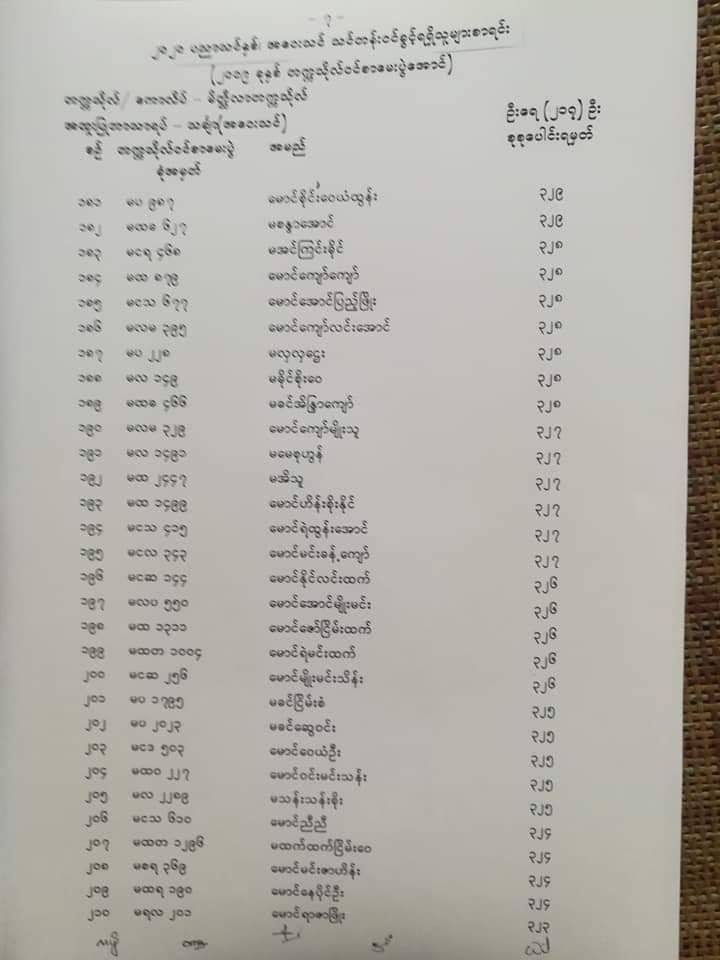 - ၇ -
၂၀၂၀ ပညာသင်နှစ်၊ အဝေးသင် သင်တန်းဝင်ခွင့်ရရှိသူများစာရင်း
(၂၀၁၉ ခုနှစ် တက္ကသိုလ်ဝင်စာမေးပွဲအောင်)
တက္ကသိုလ်/ ကောလိပ် - မိတ္ထီလာတက္ကသိုလ်
အထူးပြုဘာသာရပ် - သချၤာ(အဝေးသင်) ဦးရေ (၂၁၇) ဦး
စဉ် တက္ကသိုလ်ဝင်စာမေးပွဲ ခုံအမှတ် အမည် စုစုပေါင်းရမှတ်
၁၈၁ မပ ၉၈၇ မောင်စိုင်းဝေယံထွန်း ၃၂၉
၁၈၂ မထခ ၆၂၇ မစန္ဒာအောင် ၃၂၉
၁၈၃ မငရ ၄၆၈ မအင်ကြင်းခိုင် ၃၂၈
၁၈၄ မထ ၈၇၉ မောင်ကျော်ကျော် ၃၂၈
၁၈၅ မငသ ၆၇၇ မောင်အောင်ပြည့်ဖြိုး ၃၂၈
၁၈၆ မလမ ၃၉၅ မောင်ကျော်လင်းအောင် ၃၂၈
၁၈၇ မပ ၂၂၈ မလှလှဌေး ၃၂၈
၁၈၈ မလ ၁၄၉ မခိုင်စိုးဝေ ၃၂၈
၁၈၉ မထခ ၄၆၆ မခင်အိန္ဒြာကျော် ၃၂၈
၁၉၀ မလမ ၃၂၉ မောင်ကျော်မျိုးသူ ၃၂၇
၁၉၁ မလ ၁၄၉၁ မမေစုဟွန် ၃၂၇
၁၉၂ မထ ၂၄၄၇ မအိသူ ၃၂၇
၁၉၃ မထ ၁၄၉၉ မောင်ဟိန်းစိုးနိုင် ၃၂၇
၁၉၄ မငသ ၄၁၅ မောင်ရဲထွန်းအောင် ၃၂၇
၁၉၅ မငလ ၃၄၃ မောင်မင်းခန့်ကျော် ၃၂၇
၁၉၆ မငဆ ၁၄၄ မောင်နိုင်လင်းထက် ၃၂၆
၁၉၇ မလပ ၅၅၀ မောင်အောင်မျိုးမင်း ၃၂၆
၁၉၈ မထ ၁၃၁၁ မောင်ဇော်ငြိမ်းထက် ၃၂၆
၁၉၉ မထတ ၁၀၀၄ မောင်ရဲမင်းထက် ၃၂၆
၂၀၀ မငဆ ၂၅၆ မောင်မျိုးမင်းသိန်း ၃၂၆
၂၀၁ မပ ၁၇၉၅ မခင်ငြိမ်းစံ ၃၂၅
၂၀၂ မပ ၂၀၂၃ မခင်ဆွေဝင်း ၃၂၅
၂၀၃ မငဒ ၅၀၃ မောင်ဝေယံဦး ၃၂၅
၂၀၄ မထဝ ၂၂၇ မောင်ဝင်းမင်းသန်း ၃၂၅
၂၀၅ မလ ၂၂၈၉ မသန်းသန်းစိုး ၃၂၅
၂၀၆ မငသ ၆၁၀ မောင်ညီညီ ၃၂၄
၂၀၇ မထတ ၁၂၉၆ မထက်ထက်ငြိမ်းဝေ ၃၂၄
၂၀၈ မစရ ၃၆၉ မောင်မင်းဇာဟိန်း ၃၂၄
၂၀၉ မထရ ၁၉၀ မောင်နေပိုင်ဦး ၃၂၄
၂၁၀ မရလ ၂၀၁ မောင်ရာဇာဖြိုး ၃၂၃